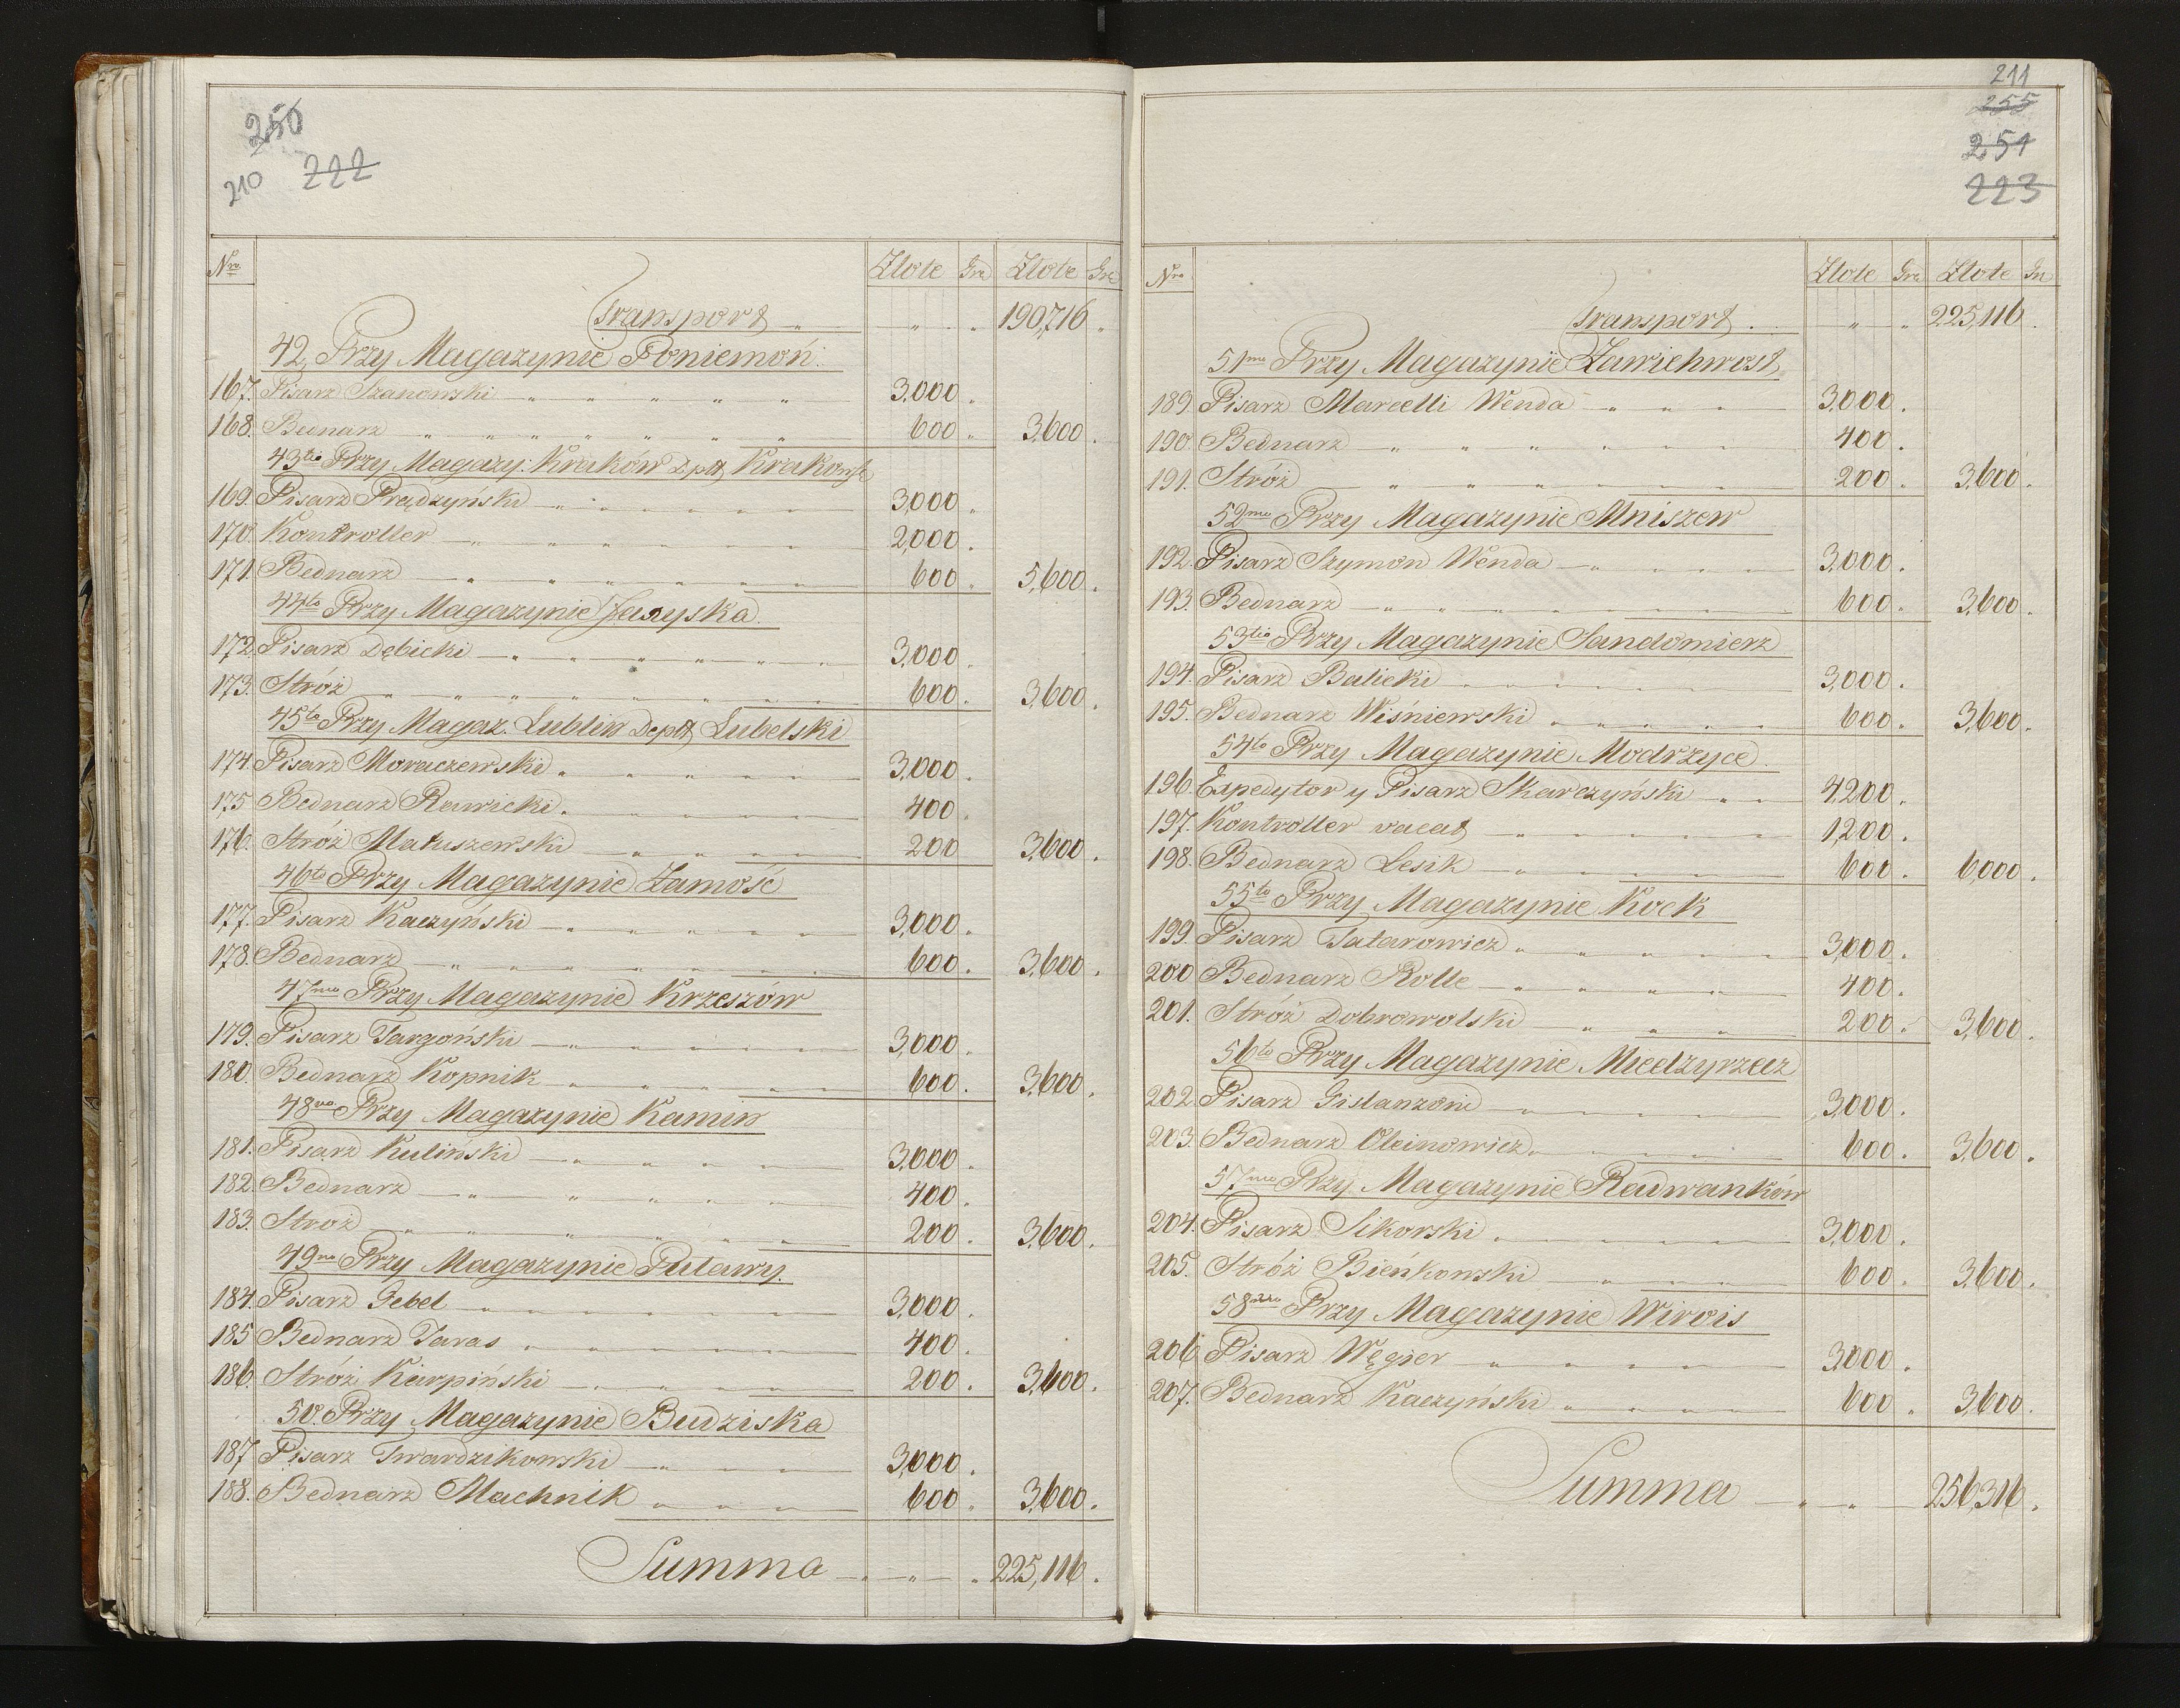 250
210 222
Nro Złote Gra Złote Gra
Transport " " 190,716.
42. Przy Magazynie Poniemoń.
167. Pisarz Szanowski 3,000.
168. Bednarz 600. 3,600.
43tio Przy Magazy: Kraków Dptt Krakowsk
169. Pisarz Prądzyński 3,000.
170. Kontroller 2,000.
171. Bednarz 600. 5,600.
44to Przy Magazynie
172. Pisarz Dębicki 3,000.
173. Stróż 600. 3,600.
45to Przy Magaz. Lublin Deptt Lubelski
174. Pisarz Moraczewski 3,000.
175 Bednarz Rawicki 400.
176. Stróż Matuszewski 200 3,600.
46to Przy Magazynie Zamość
177. Pisarz Kaczyński 3,000.
178. Bednarz 600. 3,600.
47mo Przy Magazynie Krzeszów
179. Pisarz Targoński 3,000.
180. Bednarz Kopnik 600. 3,600.
48vo Przy Magazynie Kamin
181. Pisarz Kuliński 3,000.
182. Bednarz 400.
183. Stroż 200. 3,600.
49no Przy Magazynie Puławy.
184. Pisarz Gebel 3,000.
185 Bednarz Taras 400.
186. Stróż Karpiński 200. 3,600.
50. Przy Magazynie Budziska
187 Pisarz Twardzikowski 3,000.
188. Bednarz Machnik 600. 3,600.
Summa 225,116.
211
255
251
223
Nro Złote Gra Złote Gra
Transport. " " 225,116.
51mo Przy Magazynie Zawichwost
189. Pisarz Marcelli Wenda 3,000.
190. Bednarz 400.
191. Stróż 200. 3,600.
52mo Przy Magazynie Mniszew
192. Pisarz Szymon Wenda 3,000.
193. Bednarz 600. 3,600.
53tio Przy Magazynie Sandomierz
194. Pisarz Balicki 3,000.
195. Bednarz Wiśniewski 600. 3,600.
54to Przy Magazynie Modrzyce.
196. Expedytor y Pisarz Skarczyński 4,200.
197. Kontroller vacat 1,200.
198. Bednarz Lesik 600. 6,000.
55to Przy Magazynie Kock
199. Pisarz Tatarowicz 3,000.
200 Bednarz Rolle 400.
201. Stróż Dobrowolski 200. 3,600.
56to Przy Magazynie Miedzyrzecz
202. Pisarz Gislanzoni 3,000.
203. Bednarz Oleinowicz 600. 3,600.
57mo Przy Magazynie Radwanków
204. Pisarz Sikorski 3,000.
205. Stróż Bieńkowski 600. 3,600.
58mo Przy Magazynie Wirois
206 Pisarz Węgier 3,000.
207. Bednarz Kaczyński 600. 3,600.
Summa 256,316.